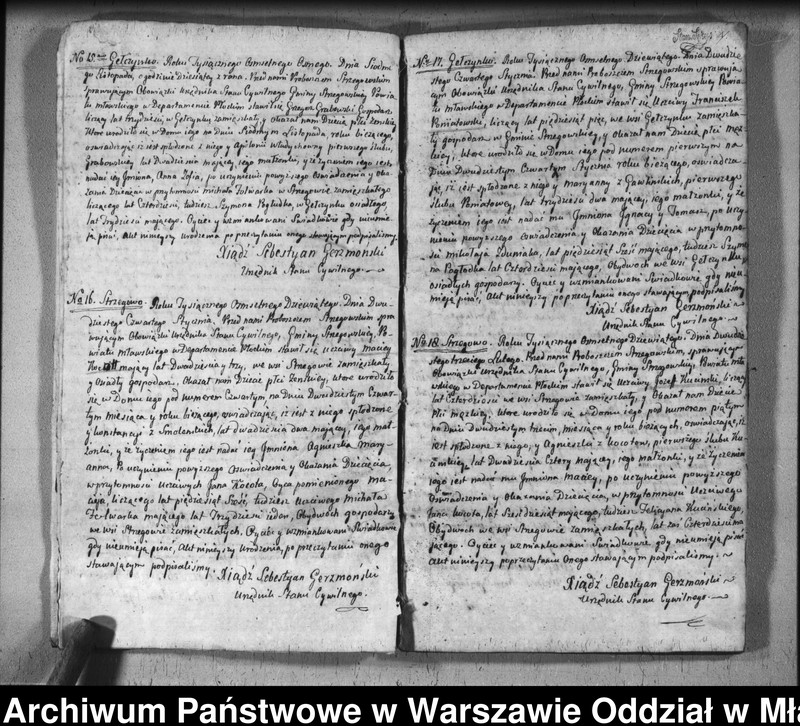 No 15. Gełczynko. Roku Tysiącznego Osmsetnego Osmego. Dnia Siodmego
Listopada, o godzinie dziesiątey z rana. Przed nami Proboszczem Strzegowskim
sprawującym Obowiązki Urzędnika Stanu Cywilnego Gminy Strzegowskiey, Powiatu
Mławskiego w Departamencie Płockim stawił się Grzegorz Grabowski Gospodarz
liczący lat trzydzieści w Gełczynku zamieszkały y okazał nam Dziecię płci żeńskiey
które urodziło się w Domu iego na Dniu Siodmym Listopada roku bieżącego,
oświadczaiąc iż iest spłodzone z niego y Apolonii pierwszego ślubu,
Grabowskiey lat Dwadzieścia maiącey, iego małżonki, y że życzeniem iego iest
nadać iey Imiona, Anna Zofia, po uczynieniu powyższego Oświadczenia y okazania
Dziecięcia w przytomności Michała Folwarka w Strzegowie zamieszkałego
liczącego lat Czterdzieści, tudzież Szymona Pogłudka, w Gełczynku osiadłego,
lat Trzydzieści maiącego. Oyciec y wzmiankowani Świadkowie gdy nieumieią
pisać, Akt ninieyszy urodzenia po przeczytaniu onego stawaiącym podpisaliśmy.
Xiądź Sebestyan Gerzmoński
Urzędnik Stanu Cywilnego.
No 16. Strzegowo. Roku Tysiącznego Osmsetnego Dziewiątego. Dnia Dwudziestego
Czwartego Stycznia. Przed nami Proboszczem Strzegowskim sprawującym
Obowiązki Urzędnika Stanu Cywilnego, Gminy Strzegowskiey, Powiatu
Mławskiego w Departamencie Płockim stawił się Uczciwy Maciey
Kocot maiący lat Dwadzieścia y trzy, we wsi Strzegowie zamieszkały
y Osiadły gospodarz. Okazał nam Dziecię płci Żeńskiey, które urodziło
się w Domu iego pod numerem Czwartym na Dniu Dwudziestym Czwartym
miesiąca y roku bieżącego, oświadczaiąc, iż iest z niego spłodzone
y Konstancyi z Smoleńskich, lat dwadzieścia dwa maiącey, iego małżonki,
y że życzeniem iego iest nadać iey Imiona Agnieszka Maryanna,
Po uczynieniu powyższego Oświadczenia y Okazania Dziecięcia
w przytomności Uczciwych Jana Kocota, Oyca pomienionego Macieja,
liczącego lat pięćdziesiąt Sześć, tudzież Uczciwego Michała
Folwarka maiącego lat Trzydzieści ieden, Obydwoch gospodarzy
we wsi Strzegowie zamieszkałych, Oyciec y wzmiankowani Świadkowie
gdy nieumieią pisać, Akt ninieyszy Urodzenia, po przeczytaniu onego
stawaiącym podpisaliśmy. Xiądź Sebestyan Gerzmoński
Urzędnik Stanu Cywilnego.
No 17. Gełczynko. Roku Tysiącznego Osmsetnego Dziewiątego. Dnia Dwudziestego
Czwartego Stycznia. Przed nami Proboszczem Strzegowskim sprawującym
Obowiązki Urzędnika Stanu Cywilnego, Gminy Strzegowskiey Powiatu
Mławskiego w Departamencie Płockim stawił się Uczciwy Franciszek
Poniatowski, liczący lat pięćdziesiąt pięć, we wsi Gełczynku zamieszkały
gospodarz w Gminie Strzegowskiey, y okazał nam Dziecię płci męzkiey,
które urodziło się w Domu iego pod numerem pierwszym na
Dniu Dwudziestym Czwartym Stycznia roku bieżącego, oświadczaiąc,
iż iest spłodzone z niego y Maryanny z Gawlinskich, pierwszego
ślubu Poniatowskiey, lat trzydzieści dwa maiącey, iego małżonki, y że
życzeniem iego iest nadać mu Imiona Ignacy y Tomasz, po uczynieniu
powyższego oświadczenia y Okazania Dziecięcia w przytomności
Mikołaja Zduniaka, lat pięćdziesiąt Sześć maiącego, tudzież Szymona
Pogłodka lat Czterdzieści maiącego, Obydwoch we wsi Gełczynku
osiadłych gospodarzy. Oyciec y wzmiankowani Świadkowie, gdy nieumieią
pisać, Akt ninieyszy po przeczytaniu onego stawaiącym podpisaliśmy
Xiądź Sebestyan Gerzmoński
Urzędnik Stanu Cywilnego.
No 18. Strzegowo. Roku Tysiącznego Osmsetnego Dziewiątego. Dnia Dwudziestego
trzeciego Lutego. Przed nami Proboszczem Strzegowskim, sprawującym
Obowiązki Urzędnika Stanu Cywilnego, Gminy Strzegowskiey, Powiatu Mławskiego
w Departamencie Płockim stawił się Uczciwy Jozef Kuciński, liczący
lat Czterdzieści we wsi Strzegowie zamieszkały, y Okazał nam Dziecię
Płci męzkiey, które urodziło się w Domu iego pod numerem piątym
na Dniu Dwudziestym trzecim, miesiąca y roku bieżących, oświadczaiąc, iż
iest spłodzone z niego, y Agnieszki z Kocotow, pierwszego ślubu
lat Dwadzieścia Cztery maiącey, iego małżonki, y że życzeniem
iego iest nadać mu Imiona Maciey, po uczynieniu powyższego
Oświadczenia y okazania Dziecięcia, w przytomności Uczciwego
Jana Kocota, lat Sześćdziesiąt maiącego, tudzież Felicyana Kucińskiego,
Obydwoch we wsi Strzegowie zamieszkałych, lat zaś Czterdzieści maiącego.
Oyciec y wzmiankowani Świadkowie, gdy nieumieią pisać
Akt ninieyszy poprzeczytaniu Onego stawaiącym podpisaliśmy.
Xiądź Sebestyan Gerzmoński
Urzędnik Stanu Cywilnego.
Archiwum Państwowe w Warszawie Oddział w Mła